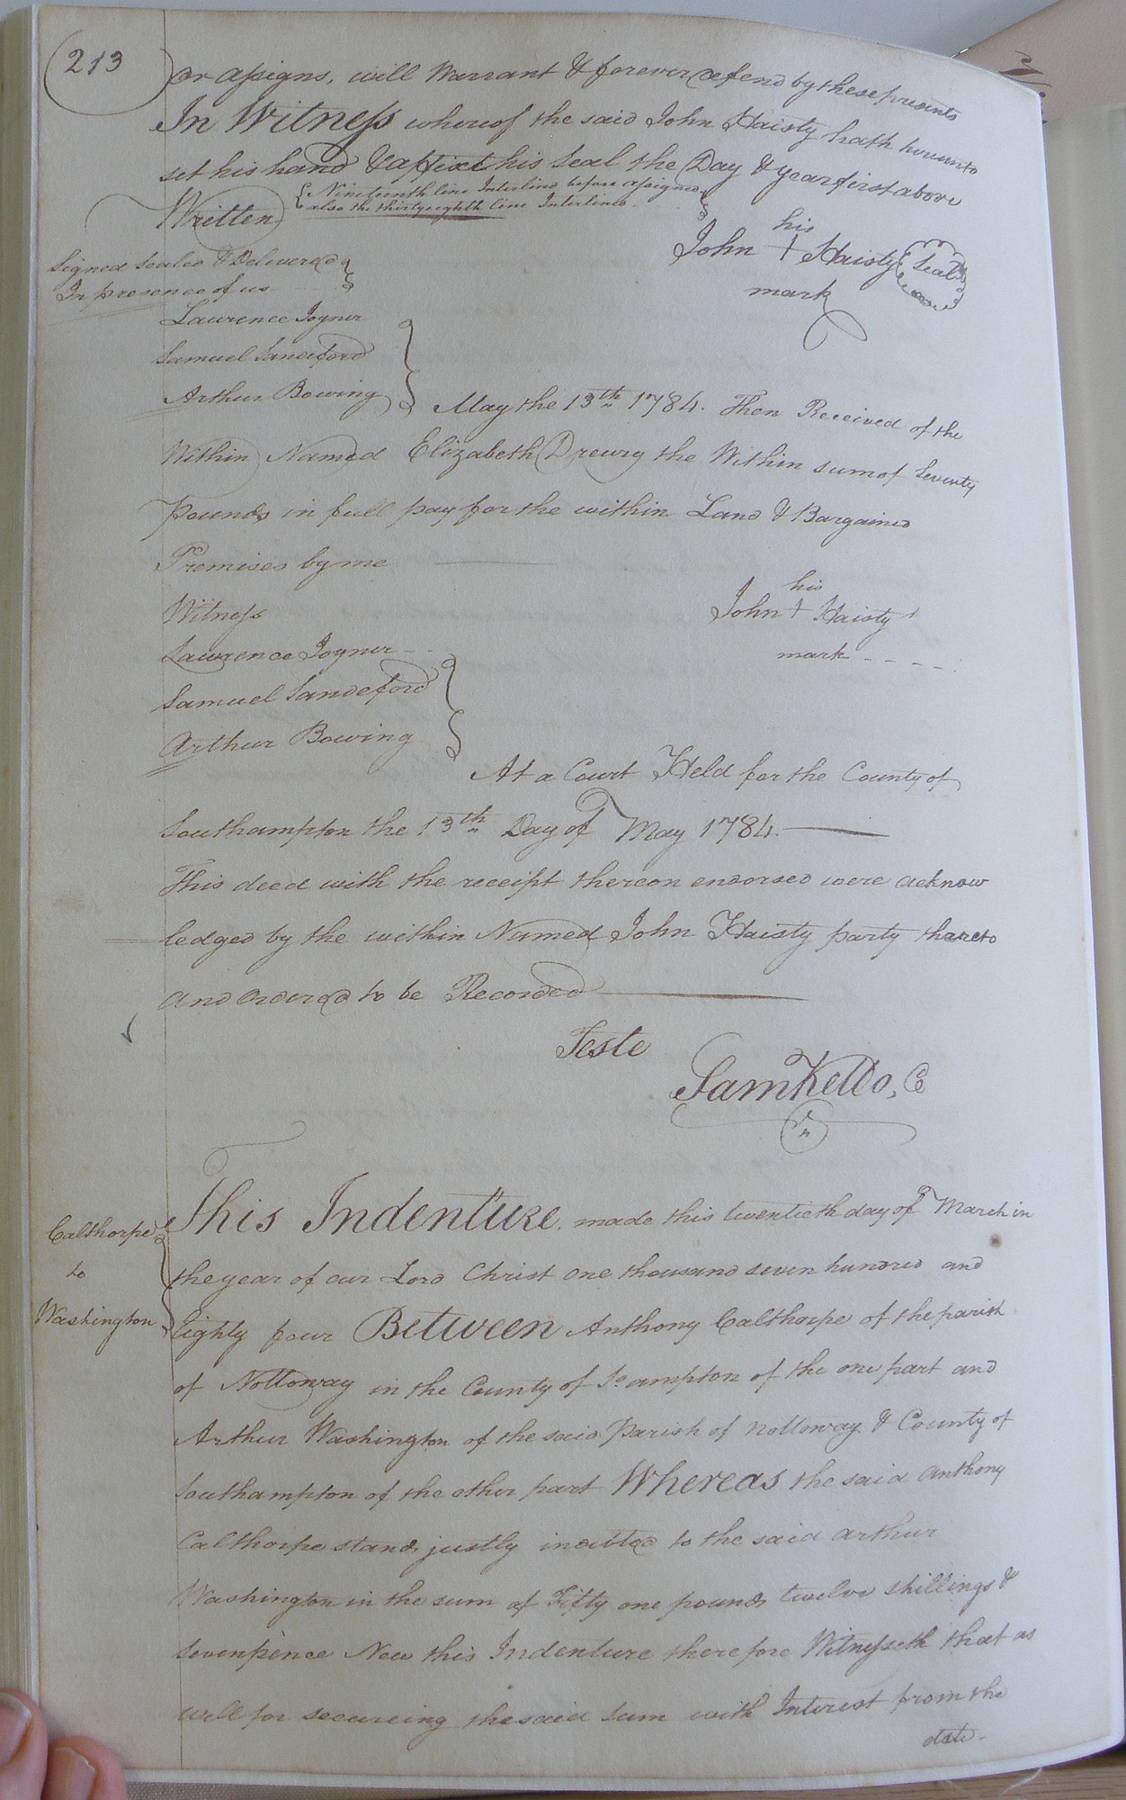 213
or assigns, will Warrant & forever defend by these presents
In Witness whereof the said John Haisty hath hereunto
set his hand & affixt his Seal the Day & year first above
Written
Nineteenth line Interlind before assigned
also the thirty eighth line Interlined
his
John + Haisty Seal
mark
Signed Sealed & Delivered
In presence of us
Laurence Joyner
Samuel Sandeford
Arthur Bowing
May the 13th 1784. Then Received of the
Within Named Elizabeth Drewry the Within sum of Seventy
Pounds in full pay for the within Land & Bargained
Premises by me
his
John + Haisty
mark
Witness
Lawrence Joyner
Samuel Sandeford
Arthur Bowing
At a Court Held for the County of
Southampton the 13th Day of May 1784.
This deed with the receipt thereon endorsed were acknow
ledged by the within Named John Haisty party thereto
and Ordered to be Recorded
Teste
Sam Kello, C
This Indenture made this twentieth day of March in
Calthorpe
to
Washington
the year of our Lord Christ one thousand seven hundred and
Eighty four Between Anthony Calthorpe of the parish
of Nottoway in the County of So ampton of the one part and
Arthur Washington of the said Parish of Nottoway & County of
Southampton of the other part Whereas the said Anthony
Calthorpe stands justly indebted to the said Arthur
Washington in the sum of Fifty one pounds twelve shillings &
sevenpence Now this Indenture therefore Witnesseth that as
well for secureing the said Sum with Interest from the
date